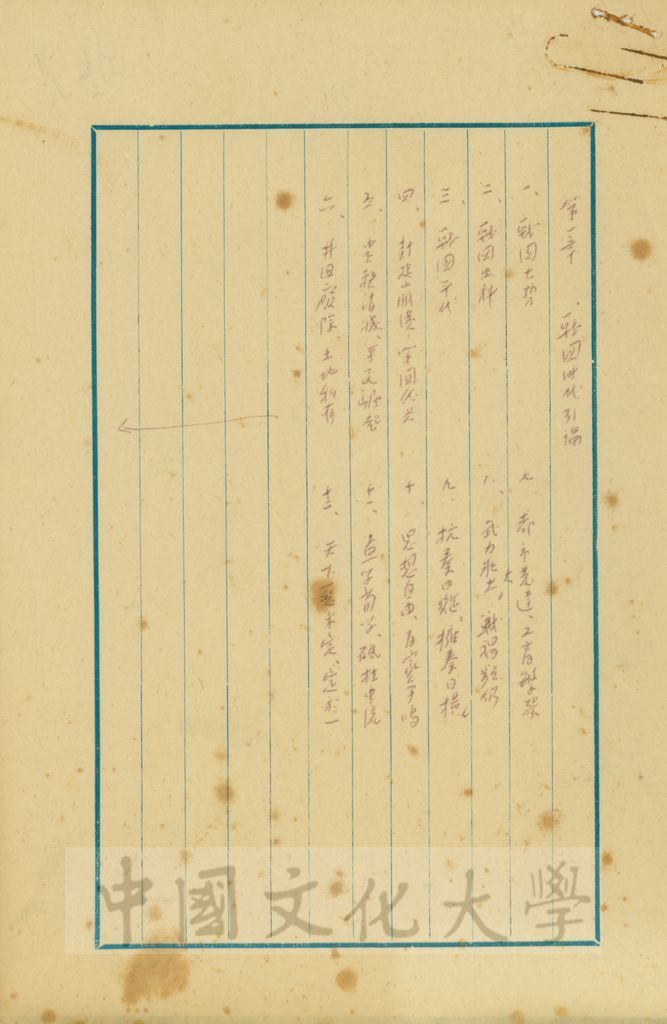 第一章 戰國時代引論
一、戰國大勢
二、戰國史料
三、戰國年代
四、封建崩潰、軍國代興
五、世族消滅、平民崛起
六、井田廢除、土地私有
七、都市發達、工商繁榮
八、武力壯大、戰禍頻仍
九、抗秦曰縱、擁秦曰橫
十、思想自由、百家爭鳴
十一、孟學荀學、砥柱中流
十二、天下惡乎定、定於一
中國文化大學